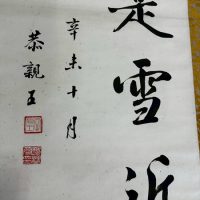 是雪近
辛未十月
恭親王